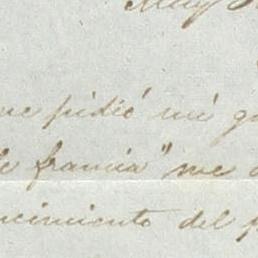 Muy
me pidió mi g
de francia" me
ncimiento del p